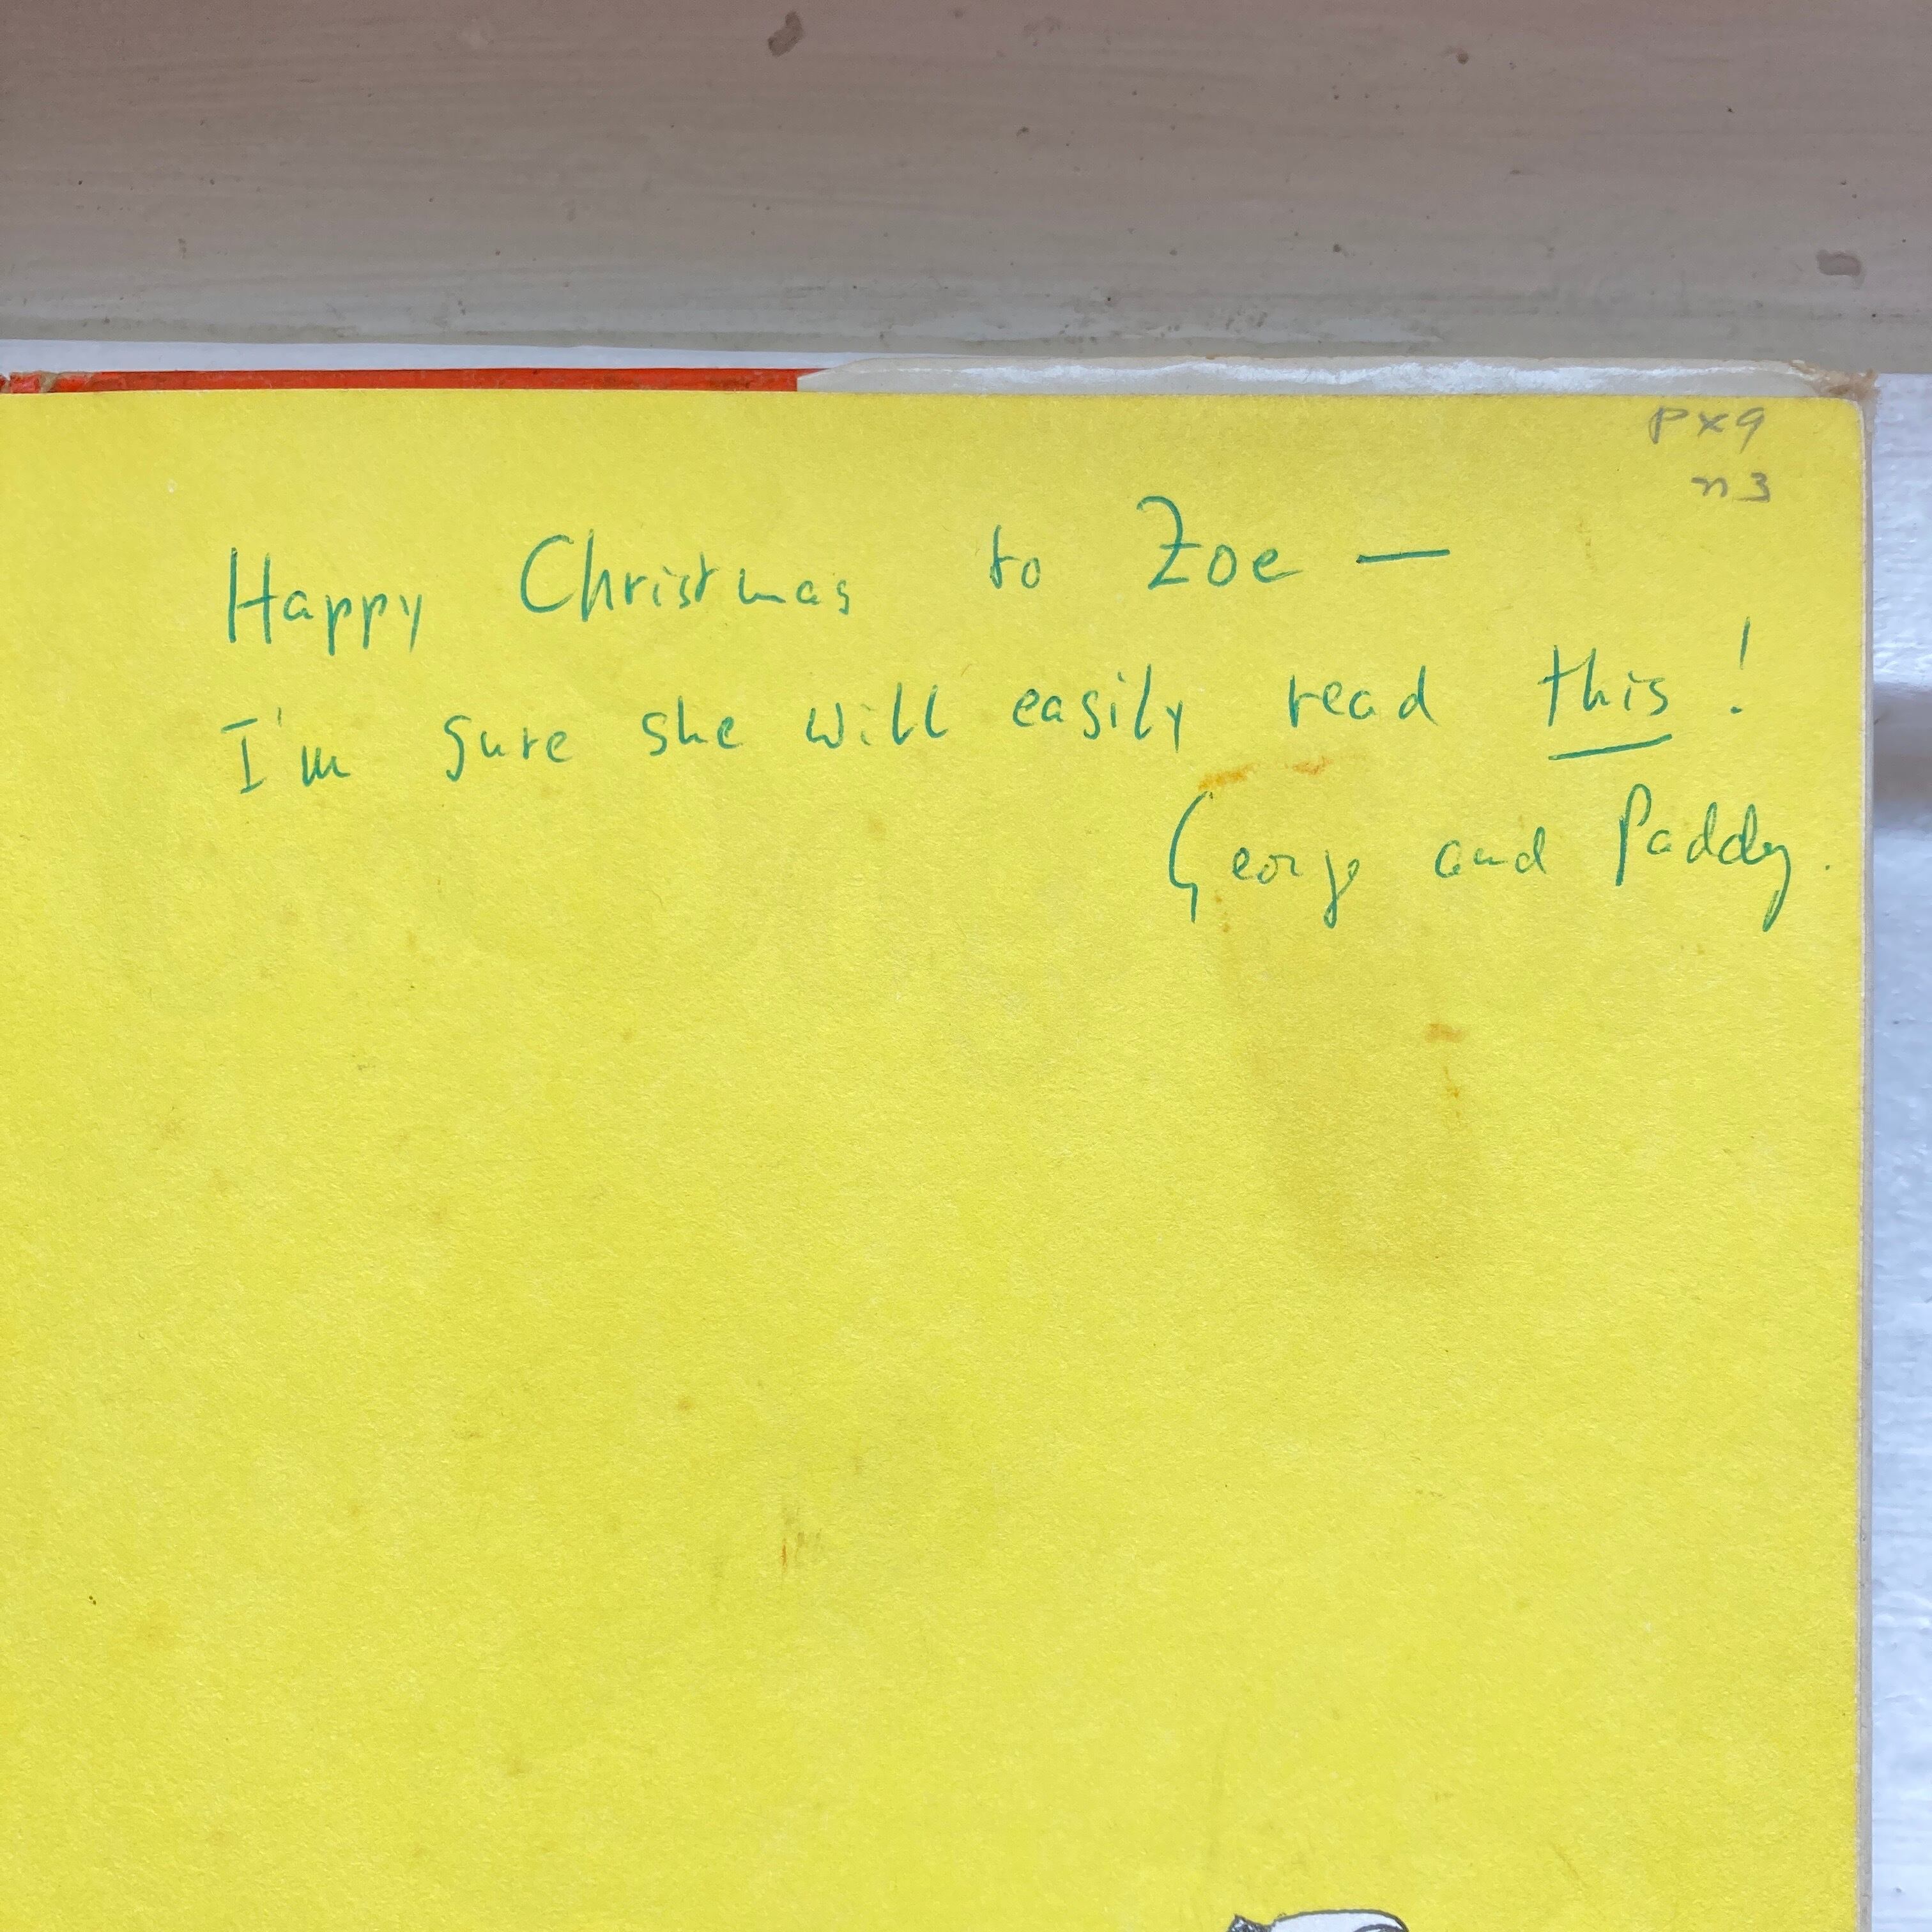 PX9
n3
Happy Christmas to Zoe —
I'm sure she will easily read this!
George and Paddy.